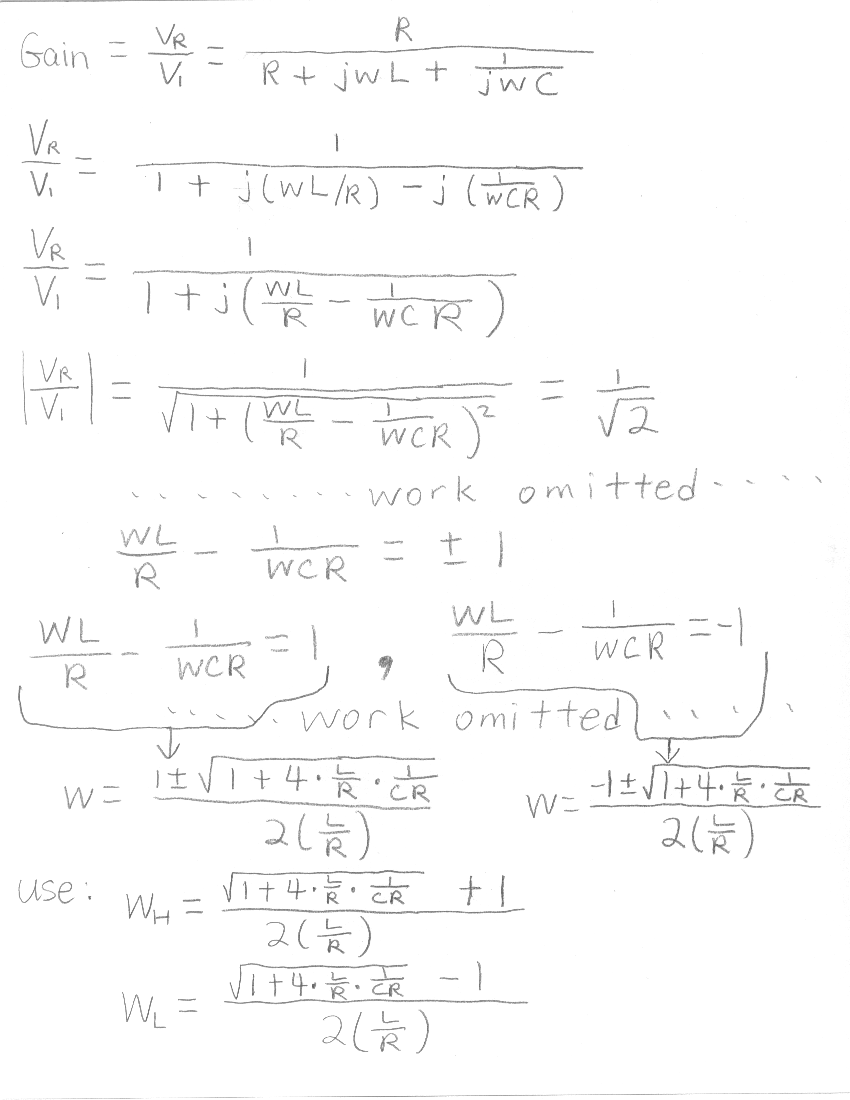 Gain = V_R/V_1 = R/(R + jwL + 1/(jwC))
V_R/V_1 = 1/(1 + j(wL/R) - j(1/(wCR)))
V_R/V_1 = 1/(1 + j(wL/R - 1/(wCR)))
|V_R/V_1| = 1/√(1 + (wL/R - 1/(wCR))²) = 1/√2
......... work omitted ....
wL/R - 1/(wCR) = ± 1
wL/R - 1/(wCR) = 1 , wL/R - 1/(wCR) = -1
..... work omitted .....
w = (1 ± √(1 + 4 · L/R · 1/(CR)))/(2(L/R)) w = (-1 ± √(1 + 4 · L/R · 1/(CR)))/(2(L/R))
use: w_H = (√(1 + 4 · L/R · 1/(CR)) + 1)/(2(L/R))
w_L = (√(1 + 4 · L/R · 1/(CR)) - 1)/(2(L/R))